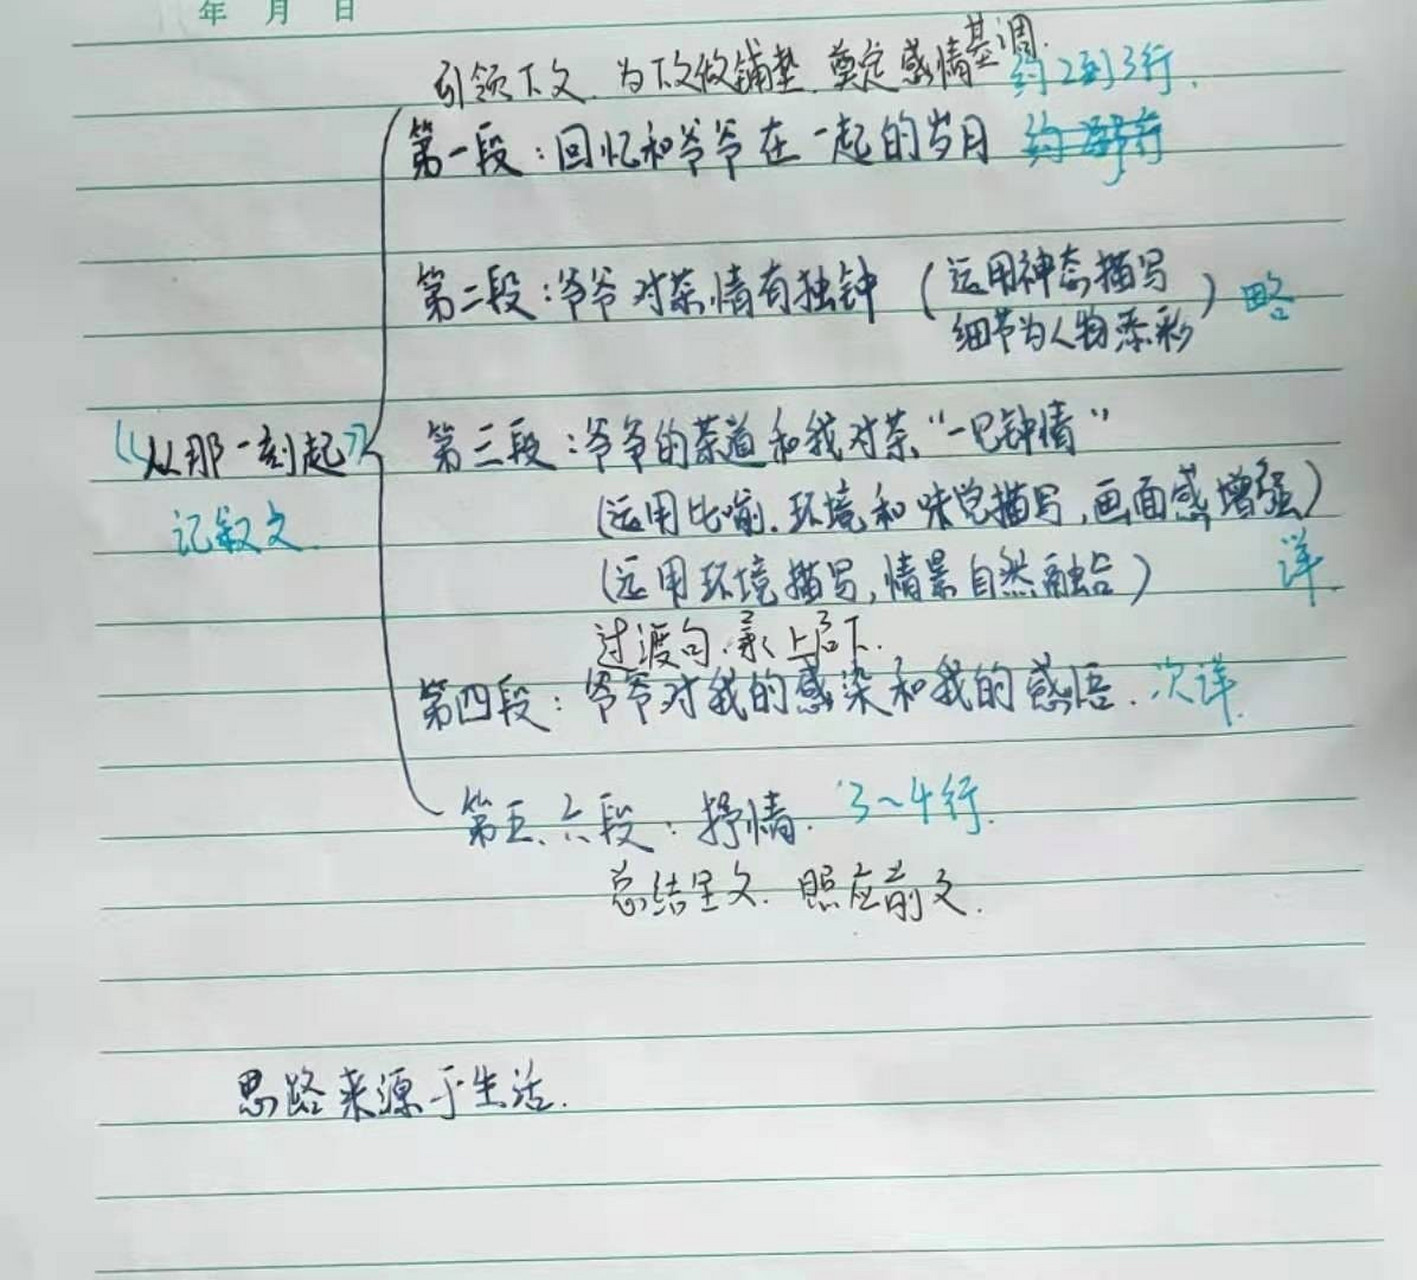 年 月 日
引领下文、为下文做铺垫、奠定感情基调. 约2到3行.
第一段：回忆和爷爷在一起的岁月
第二段：爷爷对茶情有独钟（运用神态描写 细节为人物添彩）略
《从那一刻起》
记叙文
第三段：爷爷的茶道和我对茶“一见钟情”
（运用比喻、环境和味觉描写,画面感增强）
（运用环境描写,情景自然融合） 详
过渡句.承上启下.
第四段：爷爷对我的感染和我的感悟. 次详.
第五、六段：抒情. 3~4行.
总结全文. 照应前文.
思路来源于生活.